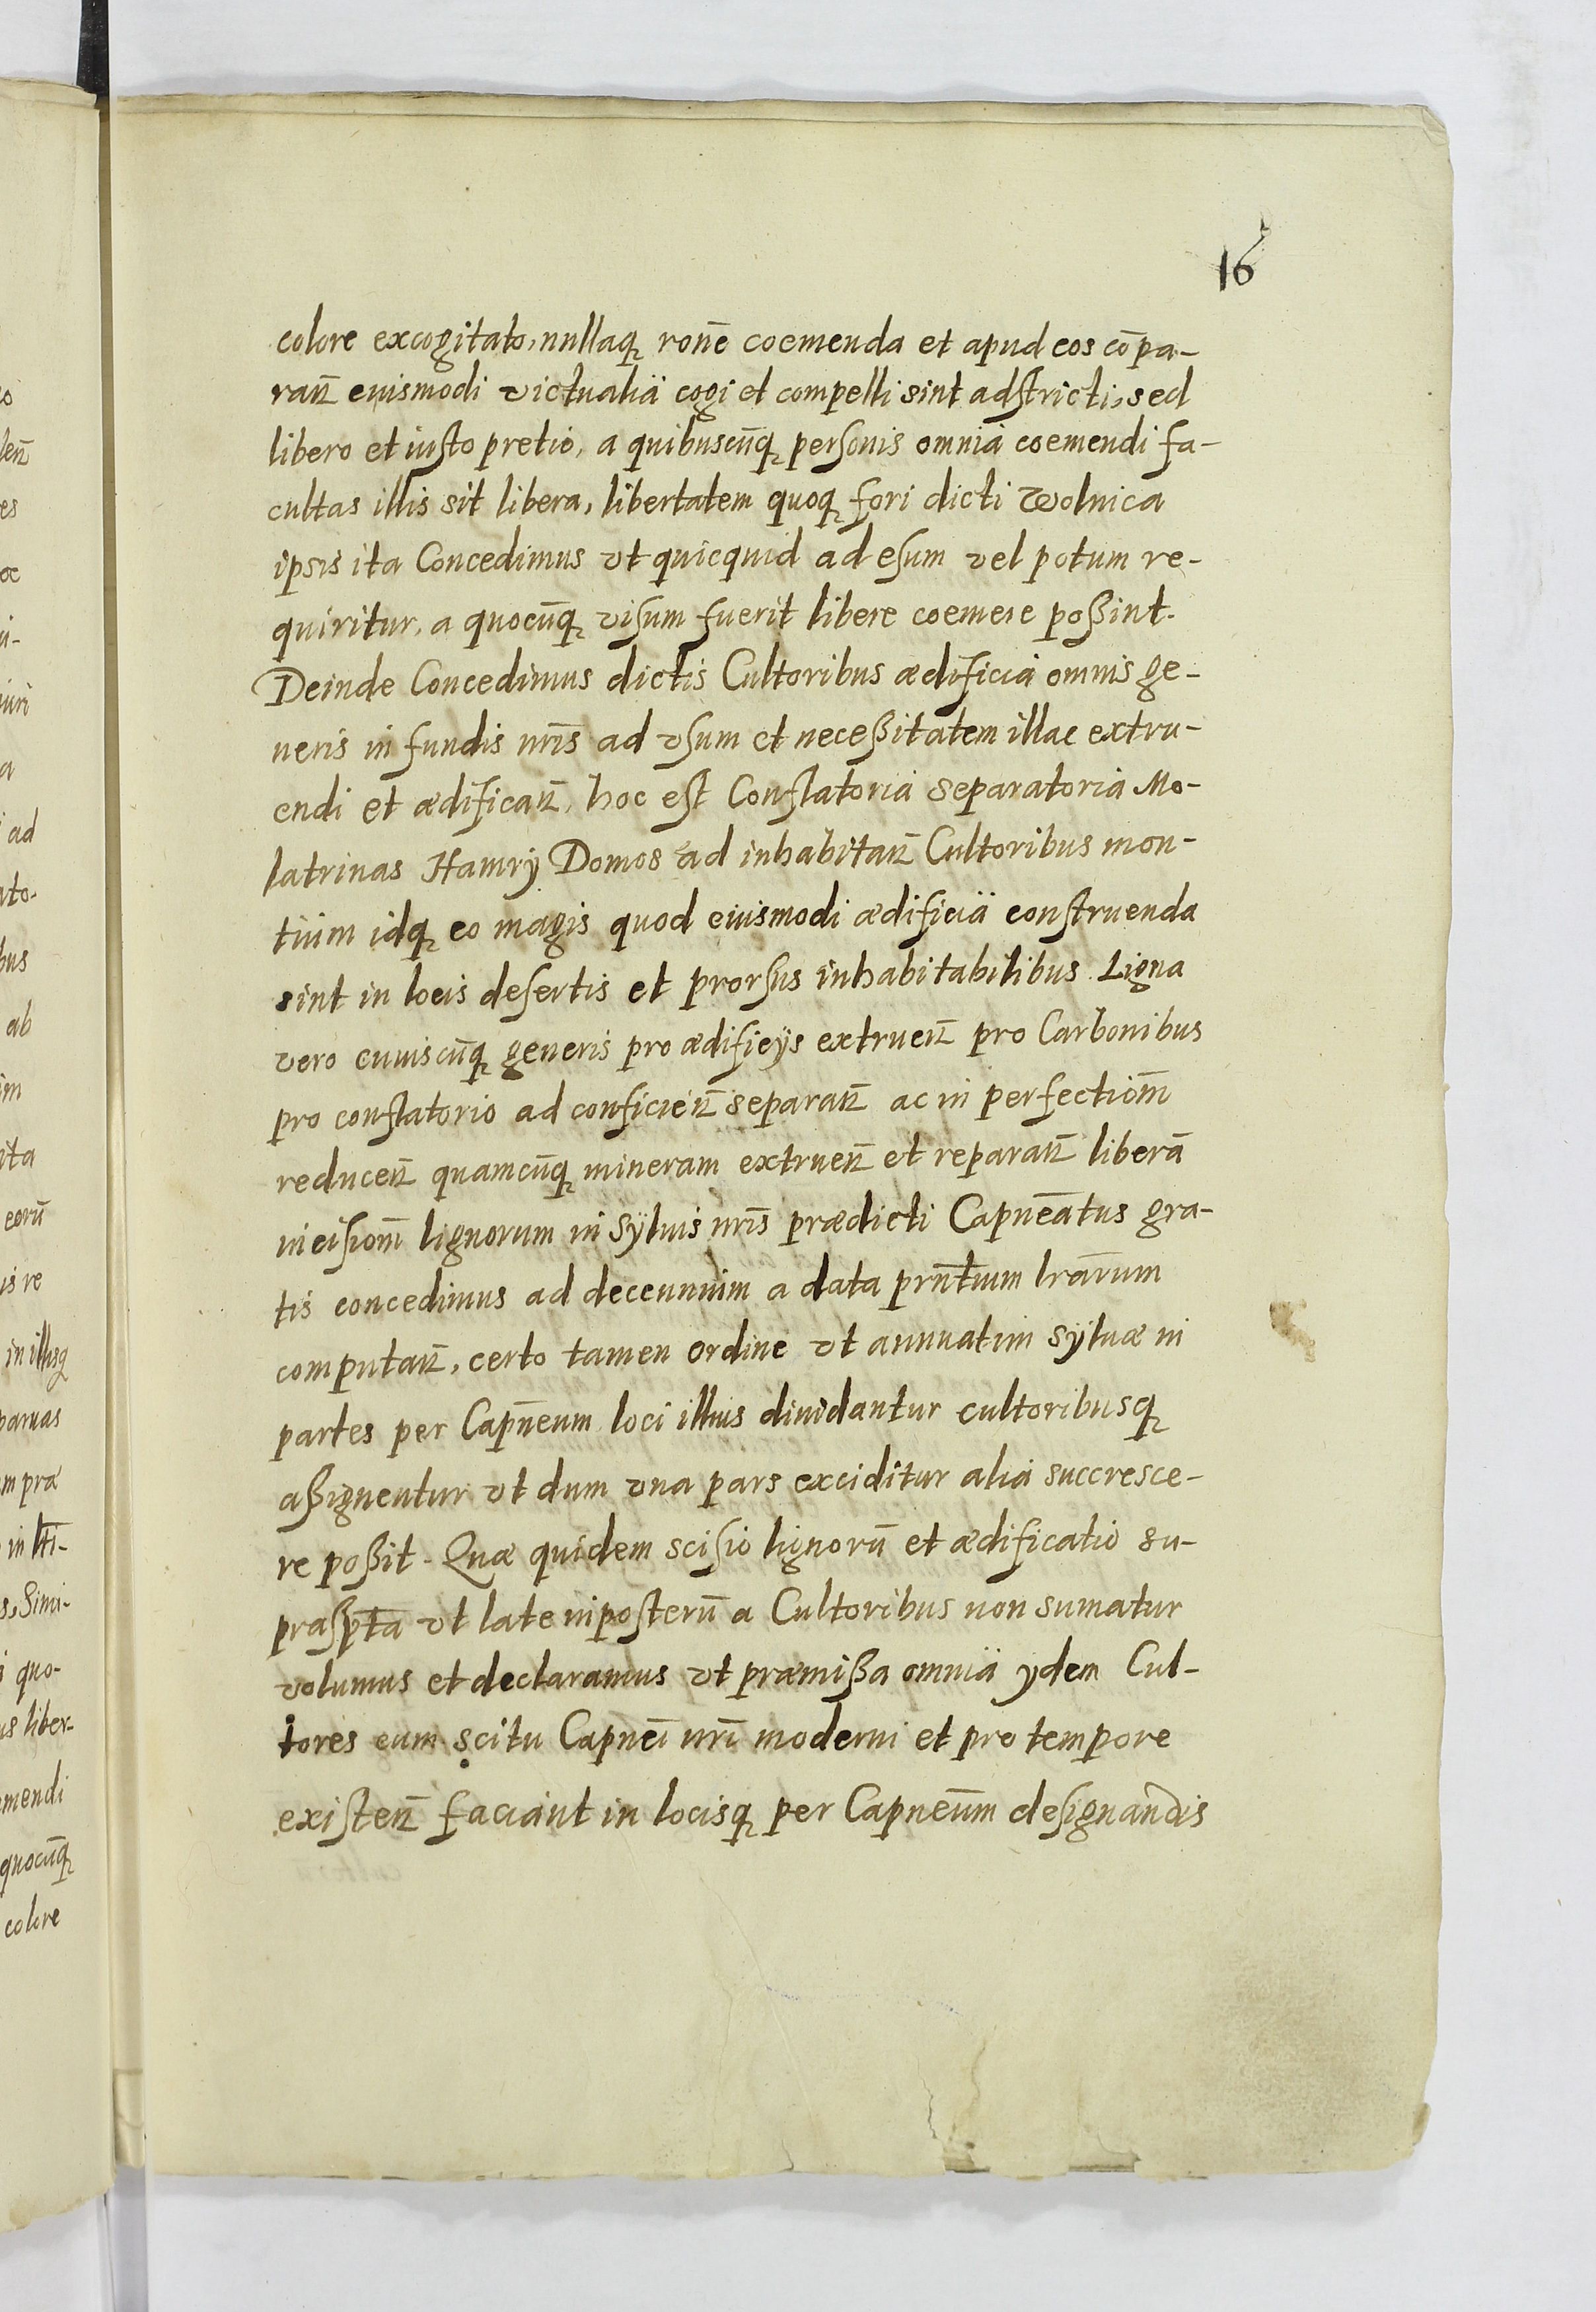 16
colore excogitato, nullaqꝫ ronē coemenda et apud eos cōpa-
ranꝫ euismodi victualia cogi et compelli sint adstricti, sed
libero et iusto pretio, a quibuscūqꝫ personis omnia coemendi fa-
cultas illis sit libera, libertatem quoqꝫ fori dicti Wolnica
ipsis ita Concedimus vt quicquid ad esum vel potum re-
quiritur, a quocūqꝫ visum fuerit libere coemere poßint.
Deinde Concedimus dictis Cultoribus ædificia omnis ge-
neris in fundis nr̄is ad vsum et neceßitatem illac extru-
endi et ædificanꝫ, hoc est Conflatoria separatoria Mo-
latrinas Hamrÿ Domos ad inhabitanꝫ Cultoribus mon-
tium idqꝫ eo magis quod eiusmodi ædificia construenda
sint in locis desertis et prorsus inhabitabilibus. Ligna
vero cuuiscūqꝫ generis pro ædificÿs extruenꝫ pro Carbonibus
pro conflatorio ad conficienꝫ separanꝫ ac in perfectiom̄
reducenꝫ quamcūqꝫ mineram extruenꝫ et reparanꝫ liberā
incisiom̄ lignorum in sÿluis nr̄is prædicti Capneātus gra-
tis concedimus ad decennium a data prn̄tium lrārum
computanꝫ, certo tamen ordine vt annuatim sÿluæ in
partes per Capn̄eum loci illius diuidantur cultoribusqꝫ
aßignentur vt dum vna pars exciditur alia succresce-
re poßit. Quæ quidem scisio lignorū et ædificatio su-
prasp̄ta vt late inposterū a Cultoribus non sumatur
volumus et declaramus vt præmißa omnia ydem Cul-
tores cum scitu Capneī nr̄i moderni et pro tempore
existenꝫ faciant in locisqꝫ per Capneūm designandis
ad
bus
ab
ita
eorū
is re
in illisqꝫ
paruas
m præ
quo-
us liber-
mendi
quocūqꝫ
colore